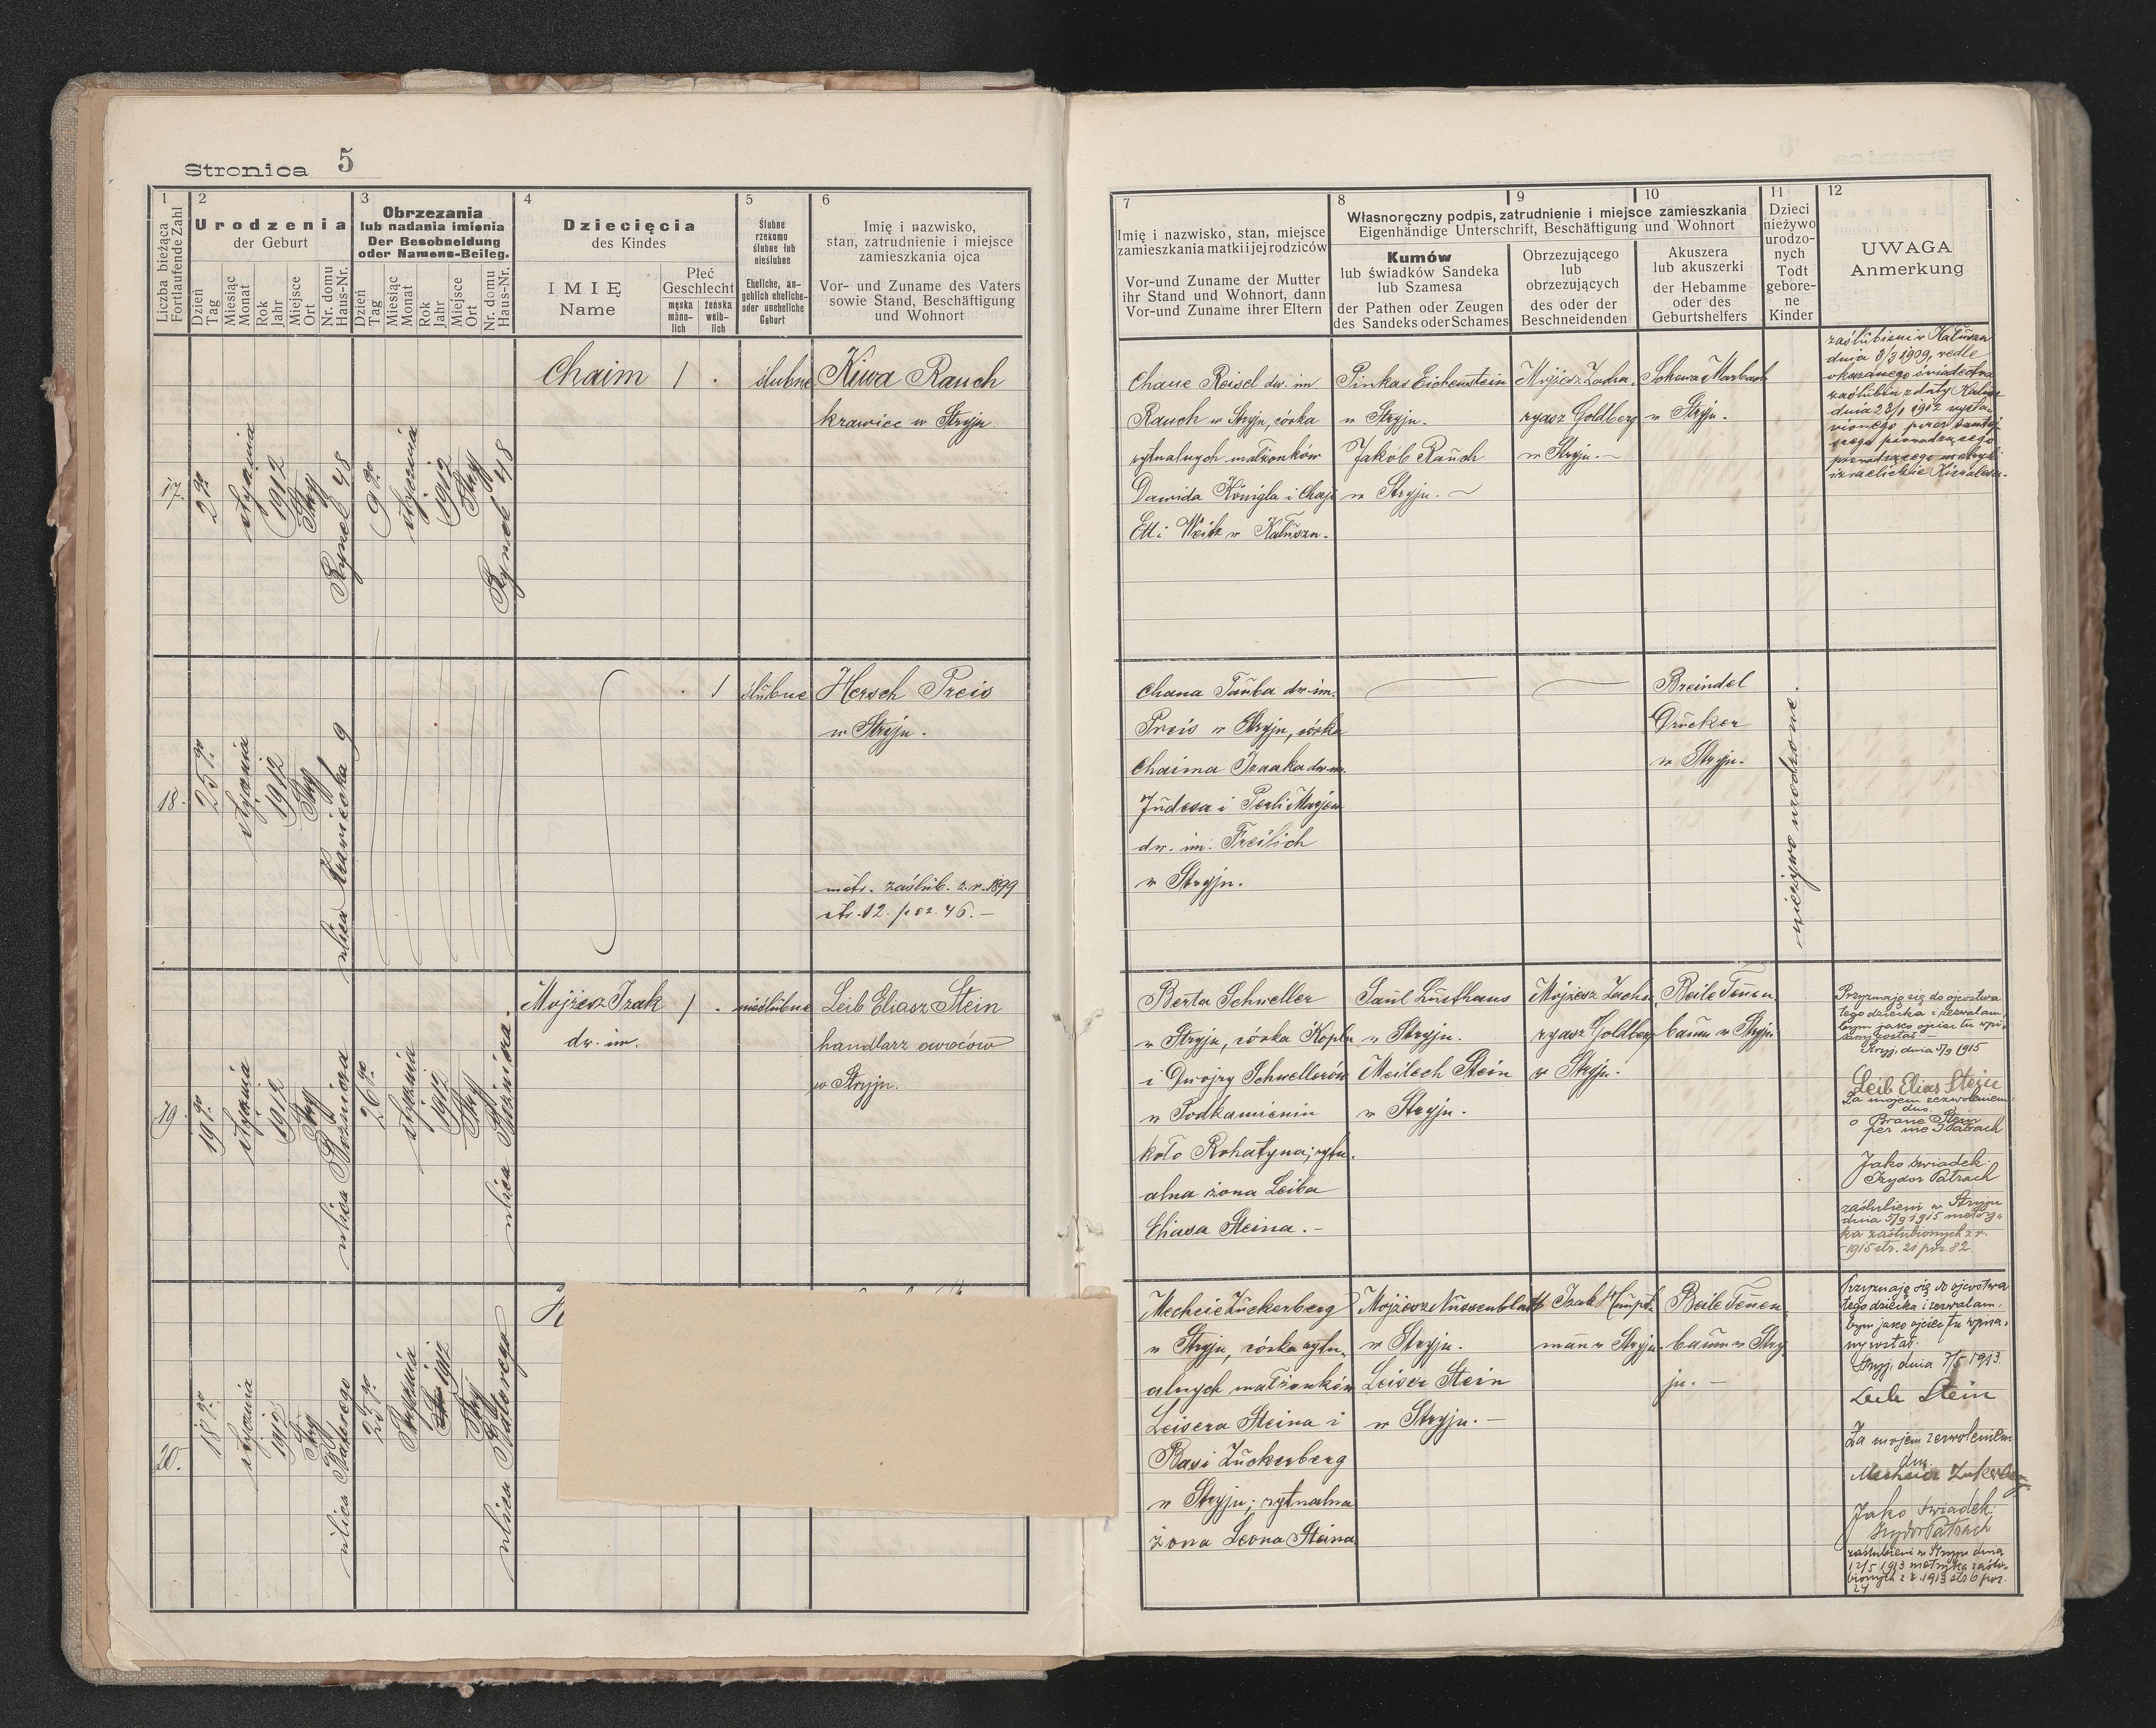 Stronica 5
1
Liczba bieżąca
Fortlaufende Zahl
2
Urodzenia
der Geburt
Dzień
Tag
Miesiąc
Monat
Rok
Jahr
Miejsce
Ort
Nr. domu
Haus-Nr.
3
Obrzezania
lub nadania imienia
Der Beschneidung
oder Namens-Beileg.
Dzień
Tag
Miesiąc
Monat
Rok
Jahr
Miejsce
Ort
Nr. domu
Haus-Nr.
4
Dziecięcia
des Kindes
IMIĘ
Name
Płeć
Geschlecht
męska
männ-
lich
żeńska
weib-
lich
5
Ślubne
rzekomo
ślubne lub
nieślubne
Eheliche, an-
geblich eheliche-
oder uneheliche
Geburt
6
Imię i nazwisko,
stan, zatrudnienie i miejsce
zamieszkania ojca
Vor- und Zuname des Vaters
sowie Stand, Beschäftigung
und Wohnort
7
Imię i nazwisko, stan, miejsce
zamieszkania matki i jej rodziców
Vor-und Zuname der Mutter
ihr Stand und Wohnort, dann
Vor-und Zuname ihrer Eltern
8
9
10
Własnoręczny podpis, zatrudnienie i miejsce zamieszkania
Eigenhändige Unterschrift, Beschäftigung und Wohnort
Kumów
lub świadków Sandeka
lub Szamesa
der Pathen oder Zeugen
des Sandeks oder Schames
Obrzezującego
lub
obrzezujących
des oder der
Beschneidenden
Akuszera
lub akuszerki
der Hebamme
oder des
Geburtshelfers
11
Dzieci
nieżywo
urodzo-
nych
Todt
gebore-
ne
Kinder
12
UWAGA
Anmerkung
17.
2go
stycznia
1912
Stryj
Rynek 48
9go
stycznia
1912
Stryj
Rynek 48
Chaim
1
.
ślubne
Kiwa Rauch
krawiec w Stryju
Chane Reisel dw. im.
Rauch w Stryju, córka
rytualnych małżonków
Dawida Königla i Chaji
Etti Weitz w Kałuszu.
Pinkas Eichenstein
w Stryju.
Jakób Rauch
w Stryju.
Mojżesz Zacha-
ryasz Goldberg
w Stryju.
Marbach
w Stryju.
zaślubieni w Kałuszu
dnia 3/3 1909, wedle
okazanego świadectwa
zaślubin z daty Kałusz
dnia 23/1 1912 wysta-
wionego przez
prowadzącego
prowadzącego metryki
izraelickie
18.
25go
stycznia
1912
Stryj
ulica Krawiecka 9
.
1
ślubne
Hersch Preis
w Stryju.
metr. zaślub. z r. 1899
str. 12. poz. 46.
Chana Tauba dw. im.
Preis w Stryju, córka
Chaima Izaaka dw. im.
Judesa i Perli Marjem
dw. im. Freilich
w Stryju.
Breindel
Drucker
w Stryju.
nieżywo urodzone.
19.
19go
stycznia
1912
Stryj
ulica Bożnicza
26go
stycznia
1912
Stryj
ulica Bożnicza.
Mojżesz Izak
dw. im.
1
.
nieślubne
Leib Eliasz Stein
handlarz owoców
w Stryju.
Berta Schweller
w Stryju, córka Kopla
i Dwojry Schwellerów
w Podkamieniu
koło Rohatyna; rytu-
alna żona Leiba
Eliasa Steina.
Saul Lufthaus
w Stryju.
Meilech Stein
w Stryju.
Mojżesz Zacha-
ryasz Goldberg
w Stryju.
Beile Tenen-
baum w Stryju.
Przyznaję się do ojcostwa
tego dziecka i zezwalam,
bym jako ojciec tu wpi-
sany został.
Stryj, dnia 5/9 1915
Leib Elias Stein
Za mojem zezwoleniem
dno.
o Brane Stein
per me I Patrach
Jako świadek:
Izydor Patrach
zaślubieni w Stryju
dnia 5/9 1915 metry-
ka zaślubionych z r.
1915 str. 21 poz 82.
20.
18go
stycznia
1912
Stryj
ulica Batorego
25go
stycznia
1912
Stryj
ulica Batorego
Mechcie Zuckerberg
w Stryju, córka rytu-
alnych małżonków
Leisera Steina i
Rasi Zuckerberg
w Stryju; rytualna
żona Leona Steina
Mojżesz Nussenblatt
w Stryju.
Leiser Stein
w Stryju.
Izak Haupt-
mann w Stryju.
Beile Tenen-
baum w Stry-
ju.
Przyznaję się do ojcostwa
tego dziecka i zezwalam,
bym jako ojciec tu wpisa-
ny został.
Stryj, dnia 7/5 1913.
Leib Stein
Za mojem zezwoleniem
dno.
Mechcie Zukerberg
Jako świadek:
Izydor Patrach
zaślubieni w Stryju dnia
12/5 1913 metryka zaślu-
bionych z r. 1913 str 6 poz.
24